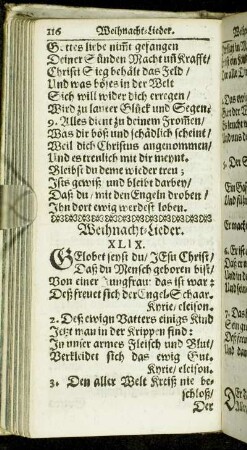 116 Weihnacht-Lieder.
G.ttes liebe nim̃t gefangen
Deiner Sünden Macht uñ Krafft/
Christi Sieg behält das Feld/
Und was böses in der Welt
Sich will wider dich erregen/
Wird zu lauter Glück und Segen.
9. Alles dient zu deinem From̃en/
Was dir böß und schädlich scheint/
Weil dich Christus angenommen/
Und es treulich mit dir meynt.
Bleibst du deme wieder treu;
Ists gewiß und bleibt darbey/
Daß du mit den Engeln droben/
Ihn dort ewig werdest loben.
Weihnacht-Lieder.
XLIX.
Gelobet seyst du/ JEsu Christ/
Daß du Mensch geboren bist/
Von einer Jungfrau das ist war:
Deß freuet sich der Engel-Schaar.
Kyrie/ eleison.
2. Deß ewigen Vatters einigs Kind
Jetzt man in der Krippen find:
In unser armes Fleisch und Blut/
Verkleidet sich das ewig Gut.
Kyrie/ eleison.
3. Den aller Welt Kreiß nie be-
schloß/
Der